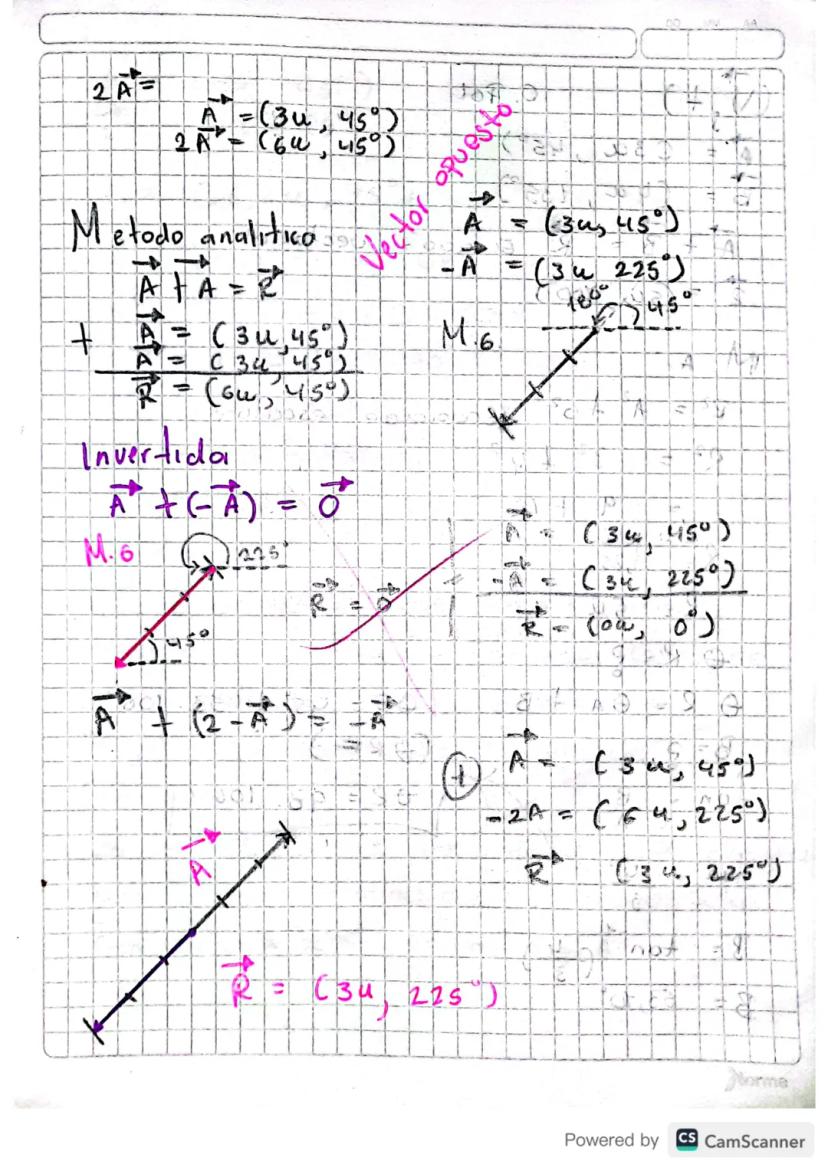 2A⃗ =
A⃗ = (3u, 45°)
2A⃗ = (6u, 45°)
Metodo analitico
A⃗ + A⃗ = R⃗
+ A⃗ = (3u, 45°)
A⃗ = (3u, 45°)
R⃗ = (6u, 45°)
Vector opuesto
A⃗ = (3u, 45°)
-A⃗ = (3u 225°)
M.6
180°
45°
Invertida
A⃗ + (-A⃗) = 0⃗
M.6
225°
45°
R⃗ = 0⃗
A⃗ = (3u, 45°)
-A⃗ = (3u, 225°)
R⃗ = (0u, 0°)
A⃗ + (2-A⃗) = -A⃗
+ A⃗ = (3u, 45°)
-2A = (6u, 225°)
R⃗ (3u, 225°)
A⃗
R⃗ = (3u, 225°)
Norma
Powered by CS CamScanner